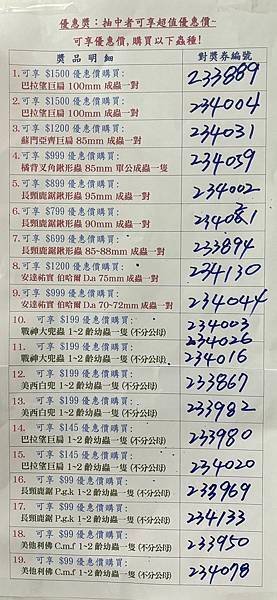 優惠獎：抽中者可享超值優惠價~
可享優惠價，購買以下蟲種！
獎品明細 對獎券編號
1.可享 $1500 優惠價購買：
巴拉望巨扁 100mm 成蟲一對 233889
2.可享 $1500 優惠價購買：
巴拉望巨扁 100mm 成蟲一對 234004
3.可享 $1200 優惠價購買：
蘇門亞齊巨扁 85mm 成蟲一對 234031
4.可享 $999 優惠價購買：
橘背叉角鍬形蟲 85mm 單公成蟲一隻 234059
5.可享 $899 優惠價購買：
長頸鹿鋸鍬形蟲 95mm 成蟲一對 234002
6.可享 $799 優惠價購買：
長頸鹿鋸鍬形蟲 90mm 成蟲一對
7.可享 $699 優惠價購買：
長頸鹿鋸鍬形蟲 85-88mm 成蟲一對 233894
8.可享 $1200 優惠價購買：
安達祐實 伯哈爾 D.a 75mm 成蟲一對 234130
9.可享 $999 優惠價購買：
安達祐實 伯哈爾 D.a 70-72mm 成蟲一對 234044
10. 可享 $199 優惠價購買：
戰神大兜蟲 1~2 齡幼蟲一隻 (不分公母) 234003
234026
11. 可享 $199 優惠價購買：
戰神大兜蟲 1~2 齡幼蟲一隻 (不分公母) 234016
12. 可享 $199 優惠價購買：
美西白兜 1~2 齡幼蟲一隻 (不分公母) 233867
13. 可享 $199 優惠價購買：
美西白兜 1~2 齡幼蟲一隻 (不分公母) 233982
14. 可享 $145 優惠價購買：
巴拉望巨扁 1~2 齡幼蟲一隻 (不分公母) 233980
15. 可享 $145 優惠價購買：
巴拉望巨扁 1~2 齡幼蟲一隻 (不分公母) 234020
16. 可享 $99 優惠價購買：
長頸鹿鋸 P.g.k 1~2 齡幼蟲一隻 (不分公母) 233969
17. 可享 $99 優惠價購買：
長頸鹿鋸 P.g.k 1~2 齡幼蟲一隻 (不分公母) 234133
18. 可享 $99 優惠價購買：
美他利佛 C.m.f 1~2 齡幼蟲一隻 (不分公母) 233950
19. 可享 $99 優惠價購買：
美他利佛 C.m.f 1~2 齡幼蟲一隻 (不分公母) 234078